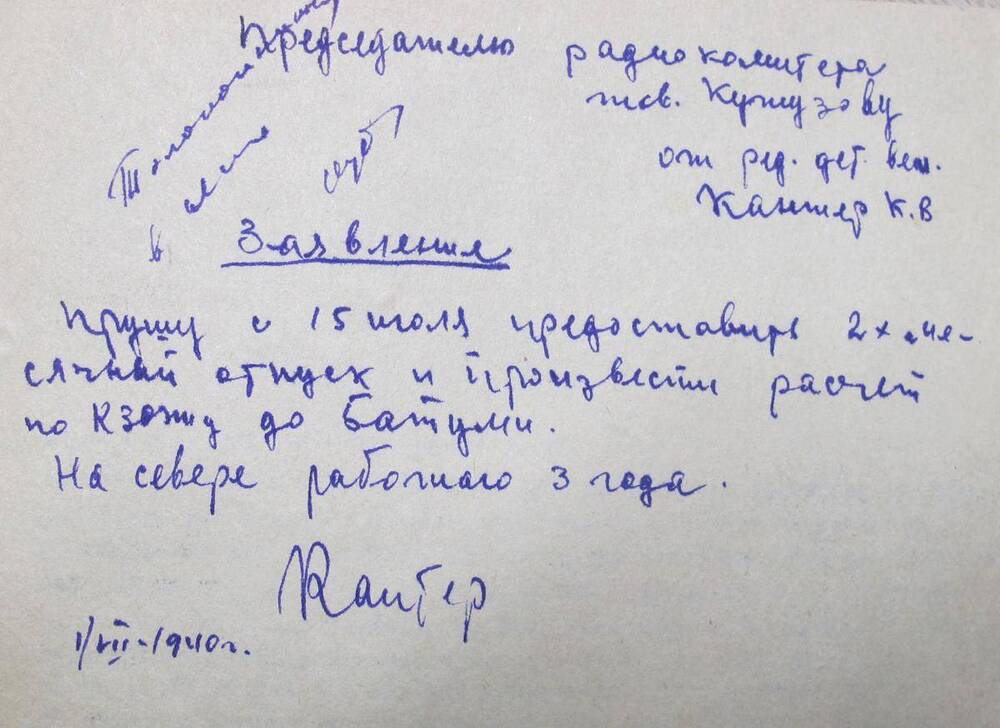 Председателю радиокомитета
тов. Кутузову
от ред. дет. вещ.
Кантер К.В
Заявление
Прошу с 15 июля предоставить 2х ме-
сячный отпуск и произвести расчет
по проезду до Батуми.
На севере работаю 3 года.
Кантер
1/VII-1940г.